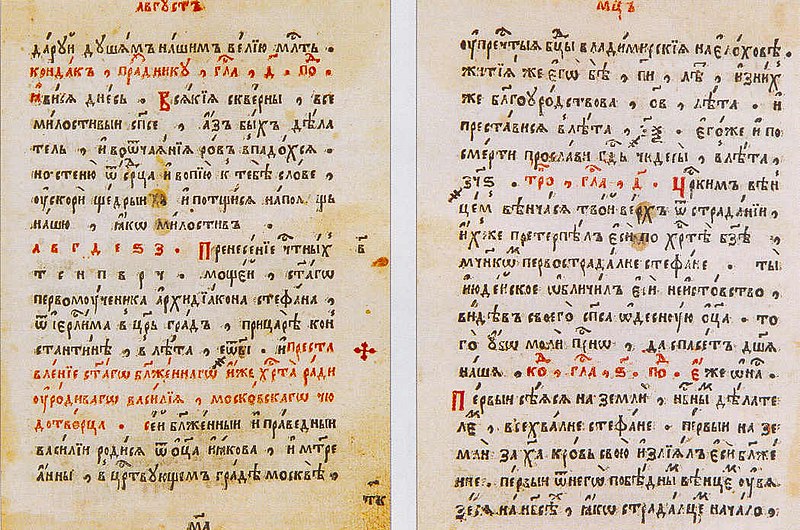 АВГꙋСТЪ
даруй душамъ нашимъ велїю млⷭ҇ть .
кондакъ , праⷥднику , гла , д҃ . поⷣ .
ꙗвисѧ днесь . Всѧкїѧ скверны , все
милостивыи сп҃се , а҆зъ быхъ дѣла
тель , и҆ воѿчаѧнїѧ ровъ впадохсѧ .
но стеню ѿ срⷣца и҆ вопїю к тебѣ слове ,
оу҆скори щедрыи и҆ потщисѧ на пом щь
нашю , ꙗ҆кѡ милостивъ .
А В Г Д Е Ѕ З . Пренесенїе чтⷭ҇ныхъ
т с и п в р ч . мощеи , ст҃аго
первомоу҆ченика а҆рхидїакона стефана ,
ѿ і҆ерⷭ҇лима в цр҃ь градъ , при царѣ кон
стантинѣ , в лѣта , . и҆ преста
вленїе ст҃агѡ бл҃женнагѡ и҆же хрⷭ҇та ради
оу҆родивагѡ василїѧ , московскагѡ чю
дотворца . сеи бл҃женныи и҆ праведныи
василїи родисѧ ѿ ѻ҆ца и҆ꙗкова , и҆ мт҃ре
а҆нны , в црⷭ҇твующемъ градѣ москвѣ ,
мцⷭ҇ъ
оу҆ пречⷭ҇тыѧ бцⷣы владимирскїѧ на елоховѣ .
житїѧ же его бѣ , пи , лѣ , и҆з них
же бл҃гоуродствова , ов , лѣта . и҆
престависѧ в лѣта , . егоже и҆ по
смерти прослави гдⷭ҇ь чюдесы , в лѣта ,
зч҃ѕ . троⷫ , гла , д҃ . Црⷭ҇кимъ вѣн
цем вѣнчасѧ твой верхъ ѿ страданїи ,
и҆х же претерпѣлъ еси по хрⷭ҇тѣ бз҃ѣ ,
мчⷦ҇никѡ первострадалне стефане . ты
и҆юдейское ѡ҆бличилъ еси неистовство ,
видѣвъ своего сп҃са ѡ҆десную ѻ҆ца . то
го оу҆бѡ моли прⷭ҇нѡ , да спасетъ дш҃а
нашѧ , коⷣ , гла , ѕ҃ . поⷣ . Еже ѡ на .
Первыи сѣѧсѧ на земли , нбⷭ҇ныи дѣлате
ле , всехвалне стефане . первыи на зе
мли за хⷭ҇а кровь свою и҆злїѧлъ еси бл҃же
не . первыи ѿ него побѣдны вѣнце оу҆вѧ
зесѧ на нбⷭ҇ѣ , ꙗ҆кѡ страдалце начало ,